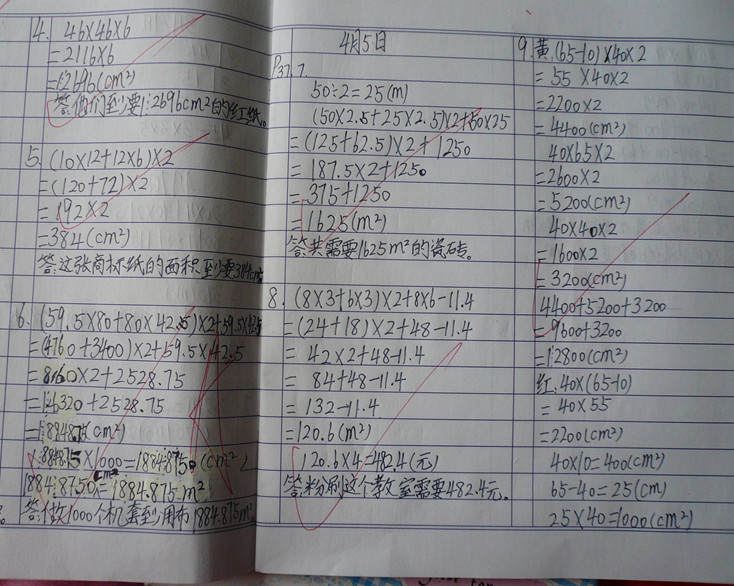 4. 46×46×6
=2116×6
=12696(cm²)
答:他们至少要12696cm²的红纸。
5. (10×12+12×6)×2
=(120+72)×2
=192×2
=384(cm²)
答:这张商标纸的面积至少要384cm²
6. (59.5×80+80×42.5)×2+59.5×42.5
=(4760+3400)×2+59.5×42.5
=8160×2+2528.75
=16320+2528.75
=18848.75(cm²)
18848.75×1000=18848750(cm²)
18848750cm²=1884.875m²
答:做1000个机套至少用布1884.875m²
4月5日
P37.7.
50÷2=25(m)
(50×2.5+25×2.5)×2+50×25
=(125+62.5)×2+1250
=187.5×2+1250
=375+1250
=1625(m²)
答:共需要1625m²的瓷砖。
8. (8×3+6×3)×2+8×6-11.4
=(24+18)×2+48-11.4
=42×2+48-11.4
=84+48-11.4
=132-11.4
=120.6(m²)
120.6×4=482.4(元)
答:粉刷这个教室需要482.4元。
9.黄:(65-10)×40×2
=55×40×2
=2200×2
=4400(cm²)
40×65×2
=2600×2
=5200(cm²)
40×40×2
=1600×2
=3200(cm²)
4400+5200+3200
=9600+3200
=12800(cm²)
红:40×(65-10)
=40×55
=2200(cm²)
40×10=400(cm²)
65-40=25(cm)
25×40=1000(cm²)